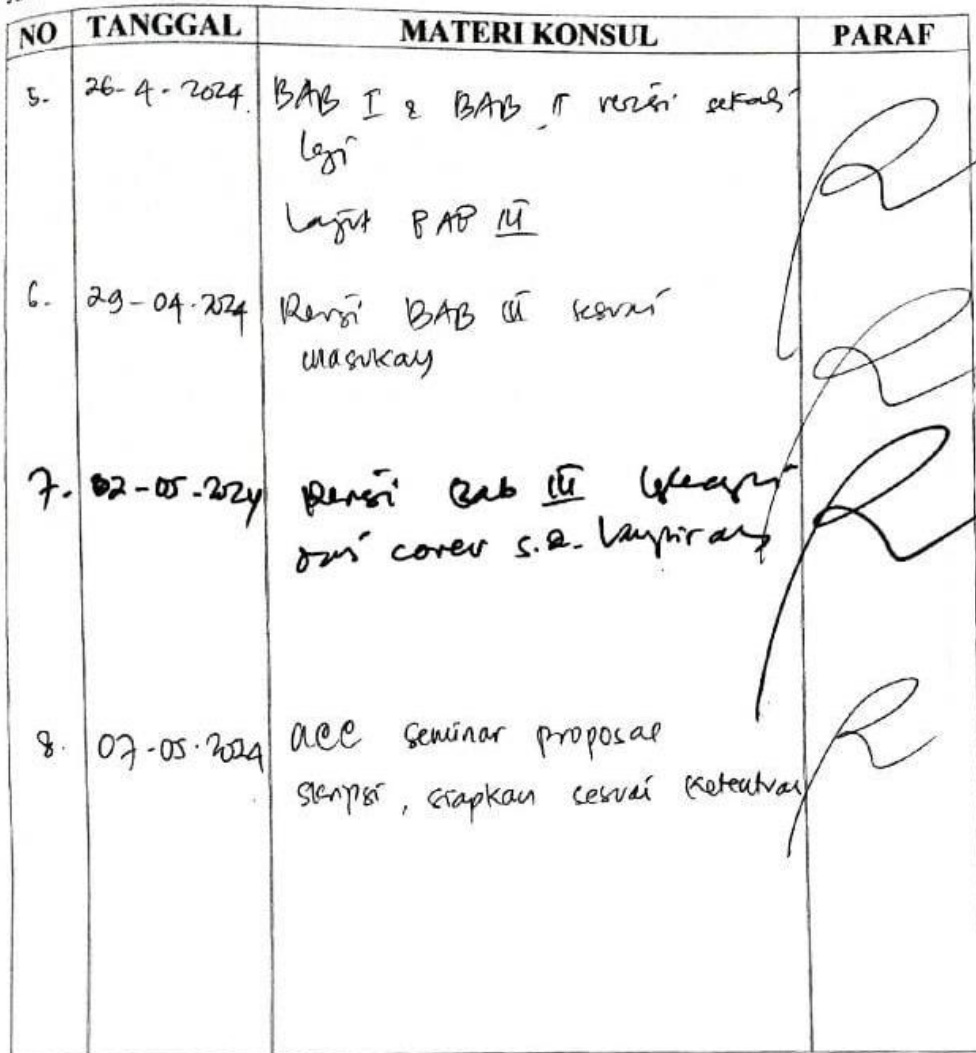 NO TANGGAL MATERI KONSUL PARAF
5. 26-4-2024 BAB I & BAB II revisi sekali
lagi
Lanjut BAB III
6. 29-04-2024 Revisi BAB III sesuai
masukan
7. 02-05-2024 Revisi Bab III lengkapi
dari cover s.d. lampiran
8. 07-05-2024 acc seminar proposal
skripsi, siapkan sesuai ketentuan